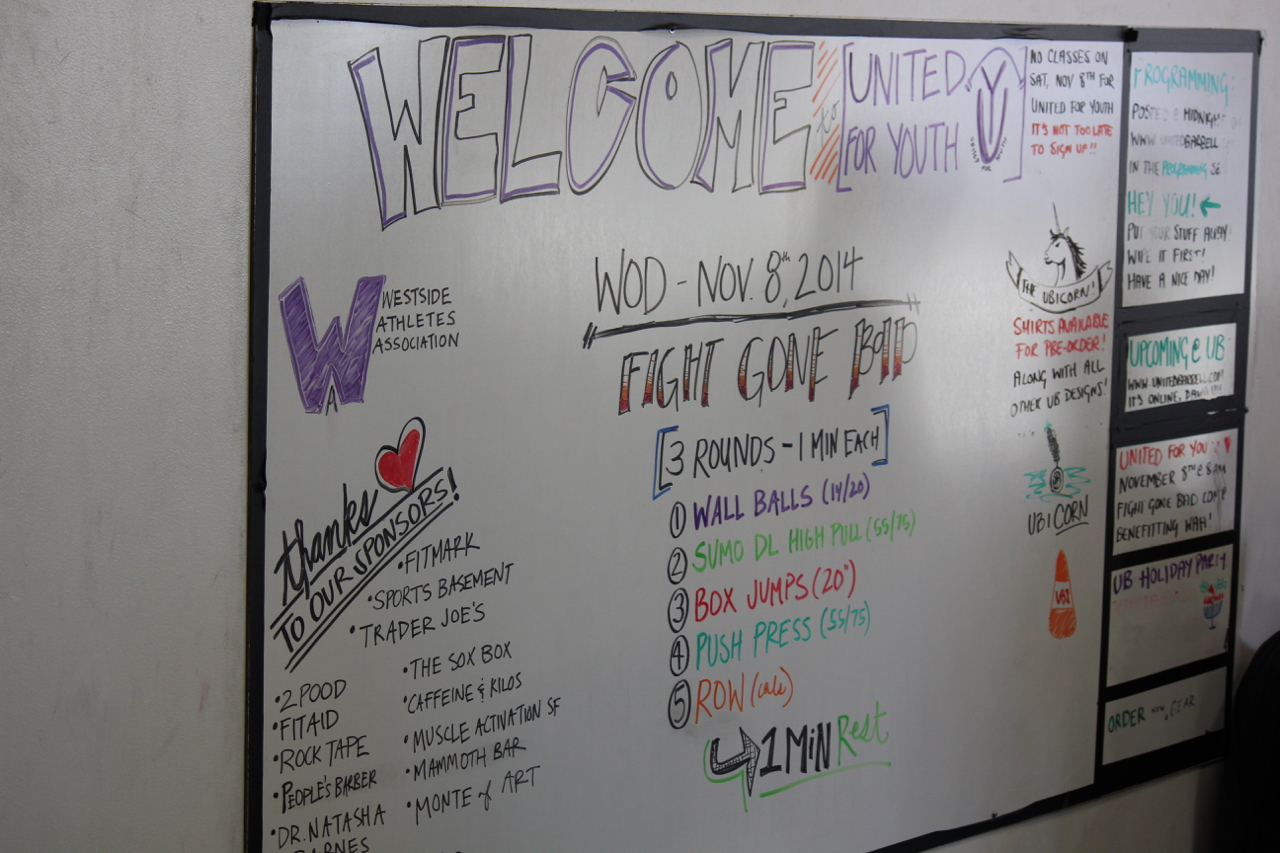 WELCOME to [UNITED FOR YOUTH]
NO CLASSES ON
SAT, NOV 8TH FOR
UNITED FOR YOUTH
IT'S NOT TOO LATE
TO SIGN UP!!
WA
WESTSIDE
ATHLETES
ASSOCIATION
Thanks
TO OUR SPONSORS!
•FITMARK
•SPORTS BASEMENT
•TRADER JOE'S
•2POOD
•FITAID
•ROCK TAPE
•PEOPLE'S BARBER
•DR. NATASHA
BARNES
•THE SOX BOX
•CAFFEINE & KILOS
•MUSCLE ACTIVATION SF
•MAMMOTH BAR
•MONTE of ART
WOD - NOV. 8th, 2014
FIGHT GONE BAD
[3 ROUNDS - 1 MIN EACH]
① WALL BALLS (14/20)
② SUMO DL HIGH PULL (55/75)
③ BOX JUMPS (20")
④ PUSH PRESS (55/75)
⑤ ROW (cals)
1 MIN Rest
THE UBICORN!
SHIRTS AVAILABLE
FOR PRE-ORDER!
ALONG WITH ALL
OTHER UB DESIGNS!
UBICORN
PROGRAMMING:
POSTED @ MIDNIGHT
WWW.UNITEDBARBELL
IN THE PROGRAMMING
HEY YOU! ←
PUT YOUR STUFF AWAY!
WIPE IT FIRST!
HAVE A NICE DAY!
UPCOMING @ UB
WWW.UNITEDBARBELL.COM
IT'S ONLINE,
UNITED FOR YOU
NOVEMBER 8TH @ 8AM
FIGHT GONE BAD COMP
BENEFITTING WAA!
UB HOLIDAY PARTY
ORDER GEAR